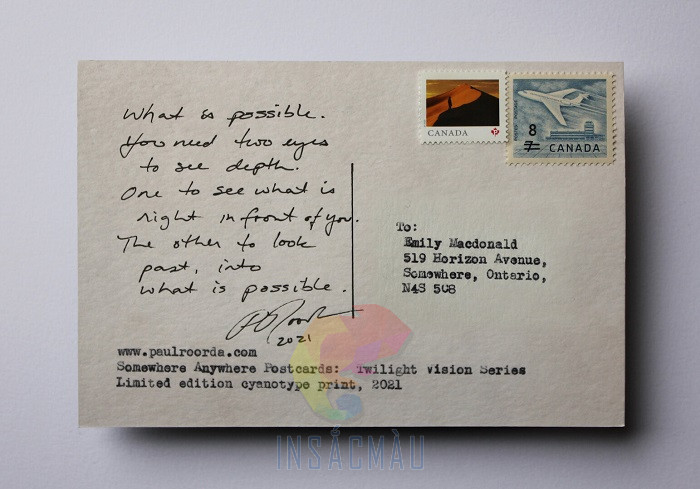 What is possible.
You need two eyes
to see depth.
One to see what is
right in front of you.
The other to look
past, into
what is possible.
2021
www.paulroorda.com
Somewhere Anywhere Postcards: Twilight Vision Series
Limited edition cyanotype print, 2021
CANADA
P
8
7 CANADA
To:
Emily Macdonald
519 Horizon Avenue,
Somewhere, Ontario,
N4S 5C8
INSẮCMÀU